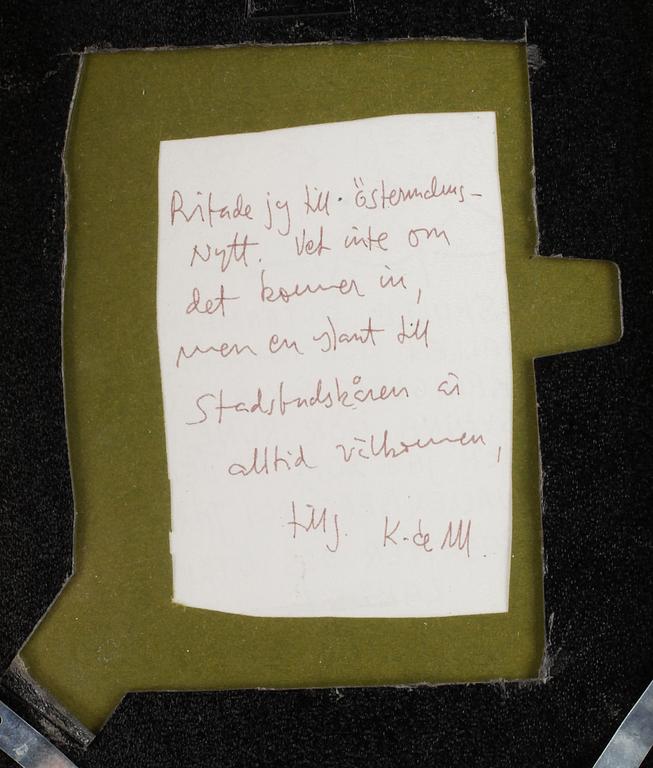 Ritade jg till Östermalms-
Nytt. Vet inte om
det kommer in,
men en slant till
Stadsbudskåren är
alltid välkommen,
tillg. K. de M.